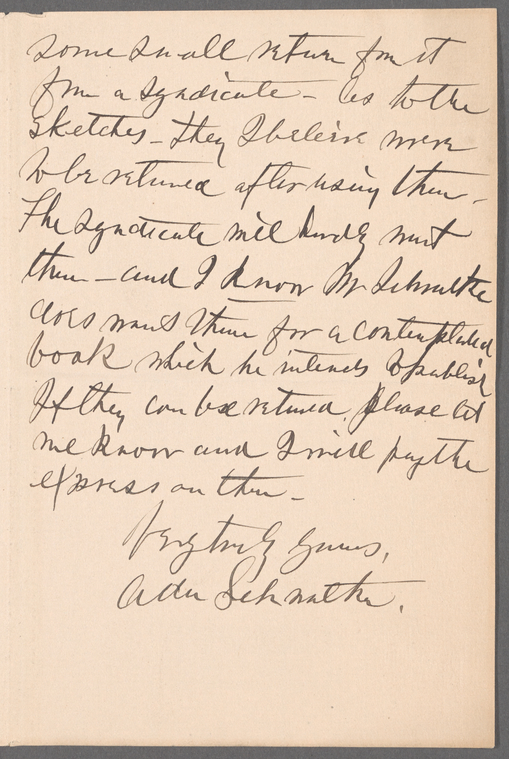 some small return for it
from a syndicate - As to the
sketches - they I believe were
to be returned after using them -
The syndicate will hardly want
them - and I know Mr Schwatka
does want them for a contemplated
book which he intends to publish
If they can be returned, please let
me know and I will pay the
express on them -
Very truly yours,
Ada Schwatka.